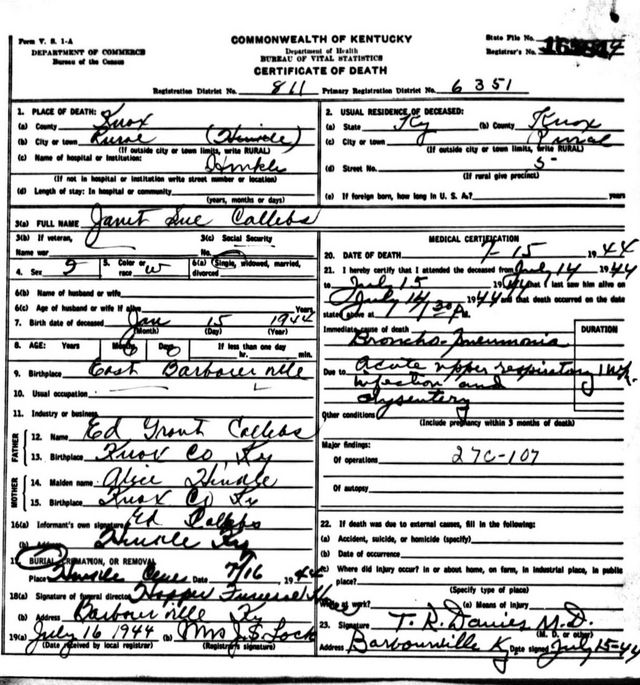 Form V. S. 1-A
DEPARTMENT OF COMMERCE
Bureau of the Census
COMMONWEALTH OF KENTUCKY
Department of Health
BUREAU OF VITAL STATISTICS
CERTIFICATE OF DEATH
State File No.
Registrar's No.
Registration District No. 811 Primary Registration District No. 6351
1. PLACE OF DEATH:
(a) County Knox
(b) City or town Rural (Hinkle)
(If outside city or town limits, write RURAL)
(c) Name of hospital or institution: Hinkle
(If not in hospital or institution write street number or location)
(d) Length of stay: In hospital or community
(years, months or days)
2. USUAL RESIDENCE OF DECEASED:
(a) State Ky (b) County Knox
(c) City or town Rural
(If outside city or town limits, write RURAL)
(d) Street No. 5
(If rural give precinct)
(e) If foreign born, how long in U. S. A.? years
3(a) FULL NAME Janet Sue Callebs
3(b) If veteran,
Name war
3(c) Social Security
No.
4. Sex
5. Color or race W
6(a) Single, widowed, married, divorced
6(b) Name of husband or wife
6(c) Age of husband or wife if alive Years
7. Birth date of deceased Jan 15 1944
(Month) (Day) (Year)
8. AGE: Years Months Days If less than one day
hr. min.
9. Birthplace East Barbourville
10. Usual occupation
11. Industry or business
FATHER
12. Name Ed Grant Callebs
13. Birthplace Knox Co, Ky
MOTHER
14. Maiden name Alice Hinkle
15. Birthplace Knox Co Ky
16(a) Informant's own signature Ed Callebs
(b) Address Hinkle Ky
17. BURIAL, CREMATION, OR REMOVAL
Place Hinkle Date 7/16 1944
18(a) Signature of funeral director Hopper Funeral
(b) Address Barbourville Ky
19(a) July 16 1944 (b) Mrs J. S. Lock
(Date received by local registrar) (Registrar's signature)
MEDICAL CERTIFICATION
20. DATE OF DEATH 7-15 1944
21. I hereby certify that I attended the deceased from July 14 1944
to July 15 1944 that I last saw him alive on
July 14 1944 and that death occurred on the date
stated above at 7:30 P.m.
Immediate cause of death
Broncho-Pneumonia
DURATION
Due to Acute upper respiratory
infection and
dysentery
Other conditions
(Include pregnancy within 3 months of death)
Major findings:
Of operations 27C-107
Of autopsy
22. If death was due to external causes, fill in the following:
(a) Accident, suicide, or homicide (specify)
(b) Date of occurrence
(c) Where did injury occur? in or about home, on farm, in industrial place, in public place?
(Specify type of place)
While at work? (e) Means of injury
23. Signature T. R. Davies M.D.
(M. D. or other)
Address Barbourville Ky Date signed July 15-44